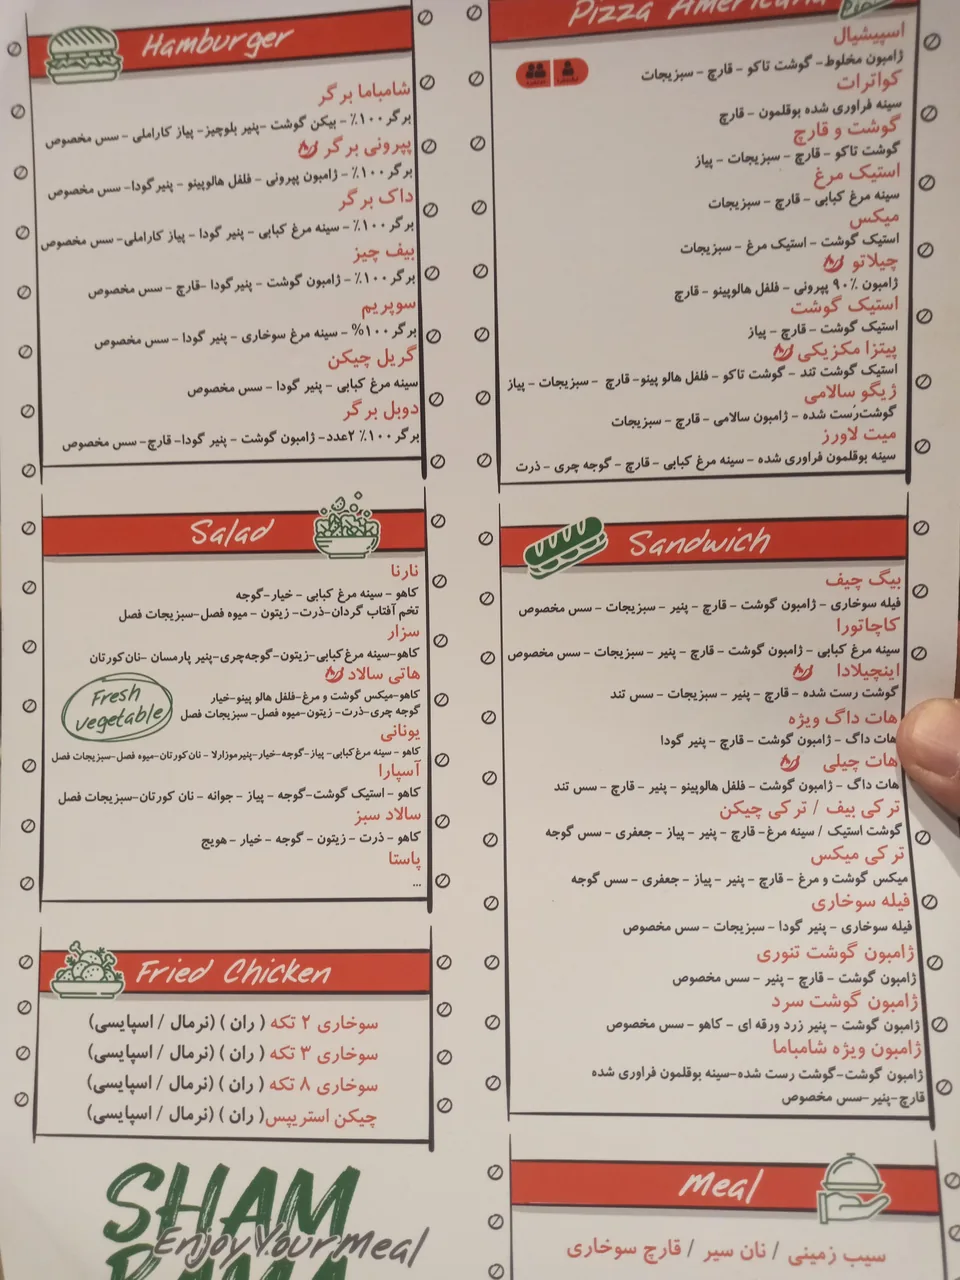 Hamburger
شامباما برگر
برگر ۱۰۰٪ - بیکن گوشت -پنیر بلوچیز- پیاز کاراملی - سس مخصوص
پپرونی برگر
برگر ۱۰۰٪ - ژامبون پپرونی - فلفل هالوپینو - پنیر گودا- سس مخصوص
داک برگر
برگر ۱۰۰٪ - سینه مرغ کبابی - پنیر گودا - پیاز کاراملی- سس مخصوص
بیف چیز
برگر ۱۰۰٪ - ژامبون گوشت - پنیر گودا -قارچ - سس مخصوص
سوپریم
برگر ۱۰۰% - سینه مرغ سوخاری - پنیر گودا - سس مخصوص
گریل چیکن
سینه مرغ کبابی - پنیر گودا - سس مخصوص
دوبل برگر
برگر ۱۰۰٪ ۲عدد- ژامبون گوشت - پنیر گودا- قارچ- سس مخصوص
Salad
نارنا
کاهو - سینه مرغ کبابی - خیار-گوجه
تخم آفتاب گردان-ذرت- زیتون - میوه فصل-سبزیجات فصل
سزار
کاهو-سینه مرغ کبابی-زیتون-گوجه‌چری-پنیر پارمسان -نان کورتان
هاتی سالاد
کاهو-میکس گوشت و مرغ-فلفل هالو پینو-خیار
گوجه چری-ذرت- زیتون-میوه فصل- سبزیجات فصل
Fresh
vegetable
یونانی
کاهو - سینه مرغ کبابی- پیاز-گوجه-خیار-پنیرموزارلا - نان کورتان-میوه فصل-سبزیجات فصل
آسپارا
کاهو - استیک گوشت-گوجه - پیاز - جوانه - نان کورتان-سبزیجات فصل
سالاد سبز
کاهو - ذرت - زیتون - گوجه - خیار - هویج
پاستا
...
Fried Chicken
سوخاری ۲ تکه ( ران ) (نرمال / اسپایسی)
سوخاری ۳ تکه ( ران ) (نرمال / اسپایسی)
سوخاری ۸ تکه ( ران ) (نرمال / اسپایسی)
چیکن استریپس( ران ) (نرمال / اسپایسی)
SHAM
BAMA
Enjoy Your Meal
Pizza Americana
اسپیشیال
ژامبون مخلوط- گوشت تاکو - قارچ - سبزیجات
کواترات
سینه فراوری شده بوقلمون - قارچ
گوشت و قارچ
گوشت تاکو - قارچ - سبزیجات - پیاز
استیک مرغ
سینه مرغ کبابی - قارچ - سبزیجات
میکس
استیک گوشت - استیک مرغ - سبزیجات
چیلاتو
ژامبون ۹۰٪ پپرونی - فلفل هالوپینو - قارچ
استیک گوشت
استیک گوشت - قارچ - پیاز
پیتزا مکزیکی
استیک گوشت تند - گوشت تاکو - فلفل هالو پینو- قارچ - سبزیجات - پیاز
ژیگو سالامی
گوشت‌رُست شده - ژامبون سالامی - قارچ - سبزیجات
میت لاورز
سینه بوقلمون فراوری شده - سینه مرغ کبابی - قارچ - گوجه چری - ذرت
Sandwich
بیگ چیف
فیله سوخاری - ژامبون گوشت - قارچ - پنیر - سبزیجات - سس مخصوص
کاچاتورا
سینه مرغ کبابی - ژامبون گوشت - قارچ - پنیر - سبزیجات - سس مخصوص
اینچیلادا
گوشت رست شده - قارچ - پنیر - سبزیجات - سس تند
هات داگ ویژه
هات داگ - ژامبون گوشت - قارچ - پنیر گودا
هات چیلی
هات داگ - ژامبون گوشت - فلفل هالوپینو - پنیر - قارچ - سس تند
ترکی بیف / ترکی چیکن
گوشت استیک / سینه مرغ- قارچ - پنیر - پیاز - جعفری - سس گوجه
ترکی میکس
میکس گوشت و مرغ - قارچ - پنیر - پیاز - جعفری - سس گوجه
فیله سوخاری
فیله سوخاری - پنیر گودا - سبزیجات - سس مخصوص
ژامبون گوشت تنوری
ژامبون گوشت - قارچ - پنیر - سس مخصوص
ژامبون گوشت سرد
ژامبون گوشت - پنیر زرد ورقه ای - کاهو - سس مخصوص
ژامبون ویژه شامباما
ژامبون گوشت-گوشت رست شده-سینه بوقلمون فراوری شده
قارچ-پنیر-سس مخصوص
Meal
سیب زمینی / نان سیر / قارچ سوخاری